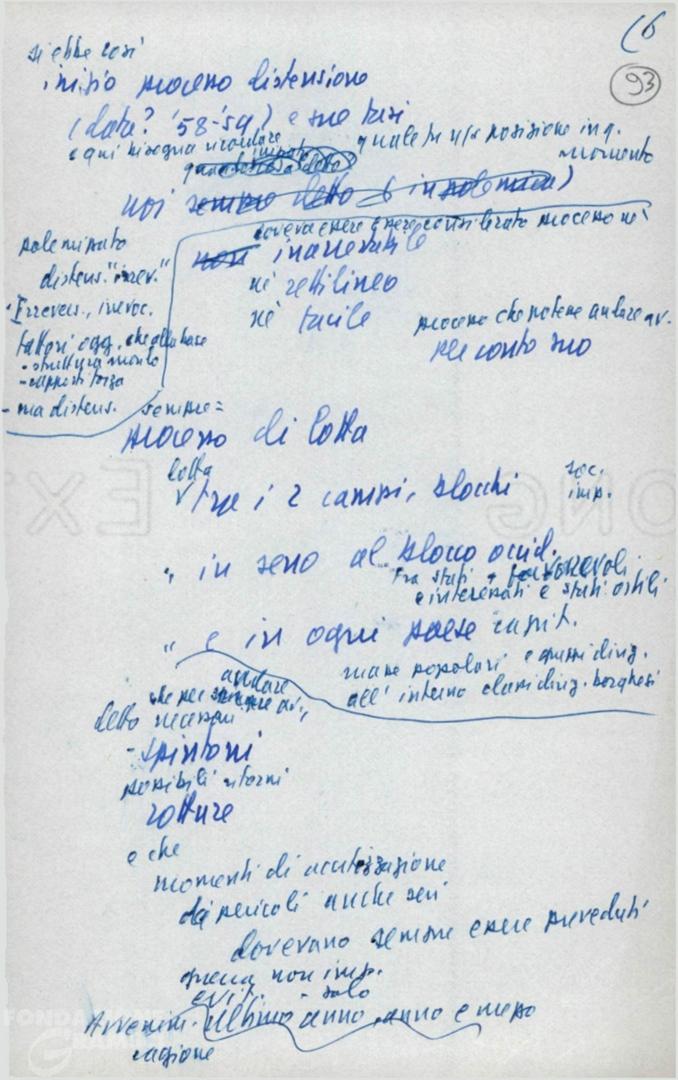 (6
93
si ebbe così
inizio processo distensione
(data? '58-'59) e sue fasi
e qui bisogna ricordare
quale fu ns posizione in q.
momento
noi sempre detto in polemica)
doveva essere e essere considerato processo nè
non inarrestabile
nè rettilineo
nè facile
processo che poteva andare av.
per conto suo
polemizzato
distens. "irrev."
Irrevers., irrevoc.
fattori ogg. che alla base
- struttura mondo
- rapporti forza
- ma distens. sempre =
processo di lotta
lotta
tra i 2 campi, blocchi
soc.
imp.
" in seno al blocco occid.
fra stati favorevoli
e interessati e stati ostili
" e in ogni paese capit.
masse popolari e gruppi dirig.
all'interno classi dirig. borghesi
andare
che per sempre av.,
detto necessari
- spintoni
possibili ritorni
rotture
e che
momenti di acutizzazione
di pericoli anche seri
dovevano sempre essere preveduti
guerra non imp.
evit. - solo
Avvenim. ultimo anno, anno e mezzo
ragione
FONDAZIONE
GRAMSCI